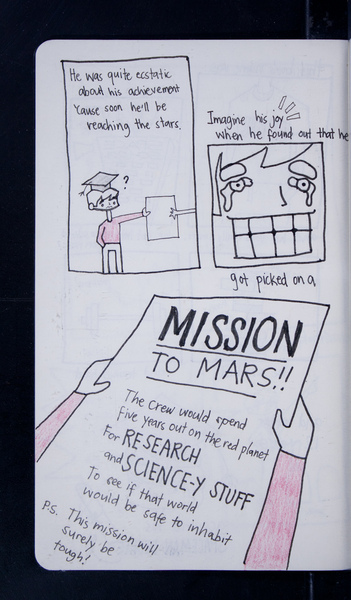 He was quite ecstatic
about his achievement
'cause soon he'll be
reaching the stars.
?
Imagine his joy
when he found out that he
got picked on a
MISSION
TO MARS!!
The crew would spend
five years out on the red planet
For RESEARCH
and SCIENCE-Y STUFF
To see if that world
would be safe to inhabit
P.S. This mission will
surely be
tough!